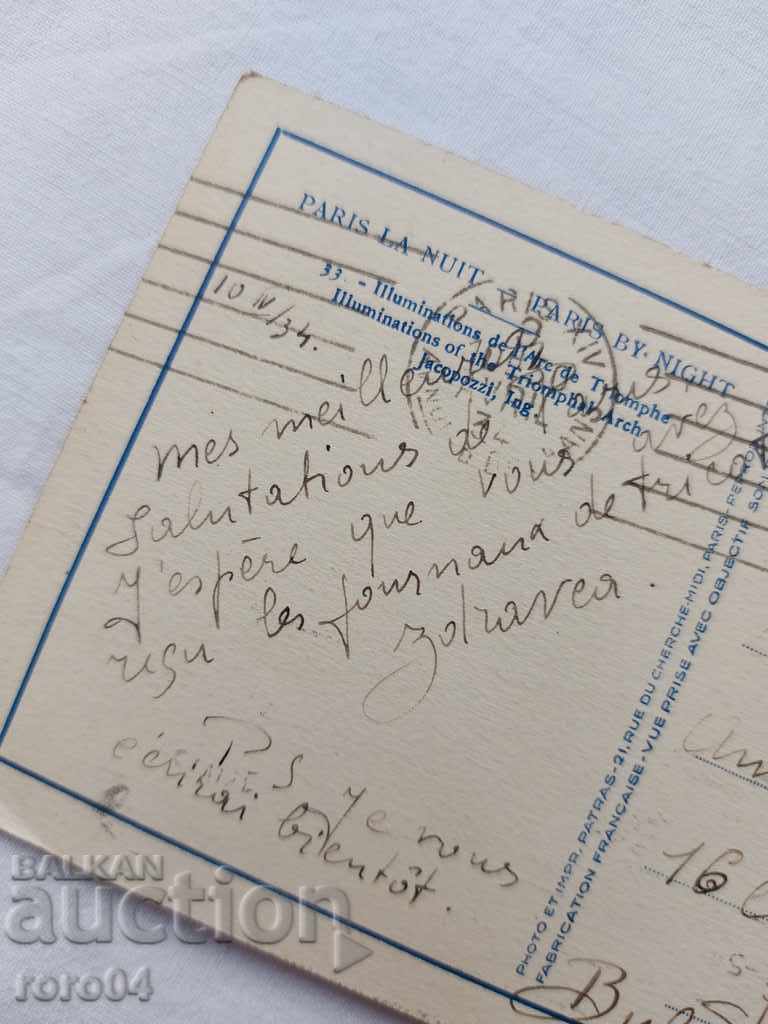 PARIS LA NUIT - PARIS BY NIGHT
33. - Illuminations de l'Arc de Triomphe
Illuminations of the Triomphal Arch
Jacopozzi, Ing.
10 IV/34.
mes meilleures
salutations de
J'espère que vous avez
reçu les journaux de tricot
Zdravca.
PS Je vous
écrirai bientôt.
PHOTO ET IMPR. PATRAS-21, RUE DU CHERCHE-MIDI, PARIS-
FABRICATION FRANÇAISE-VUE PRISE AVEC OBJECTIF
16
BALKAN
auction
roro04